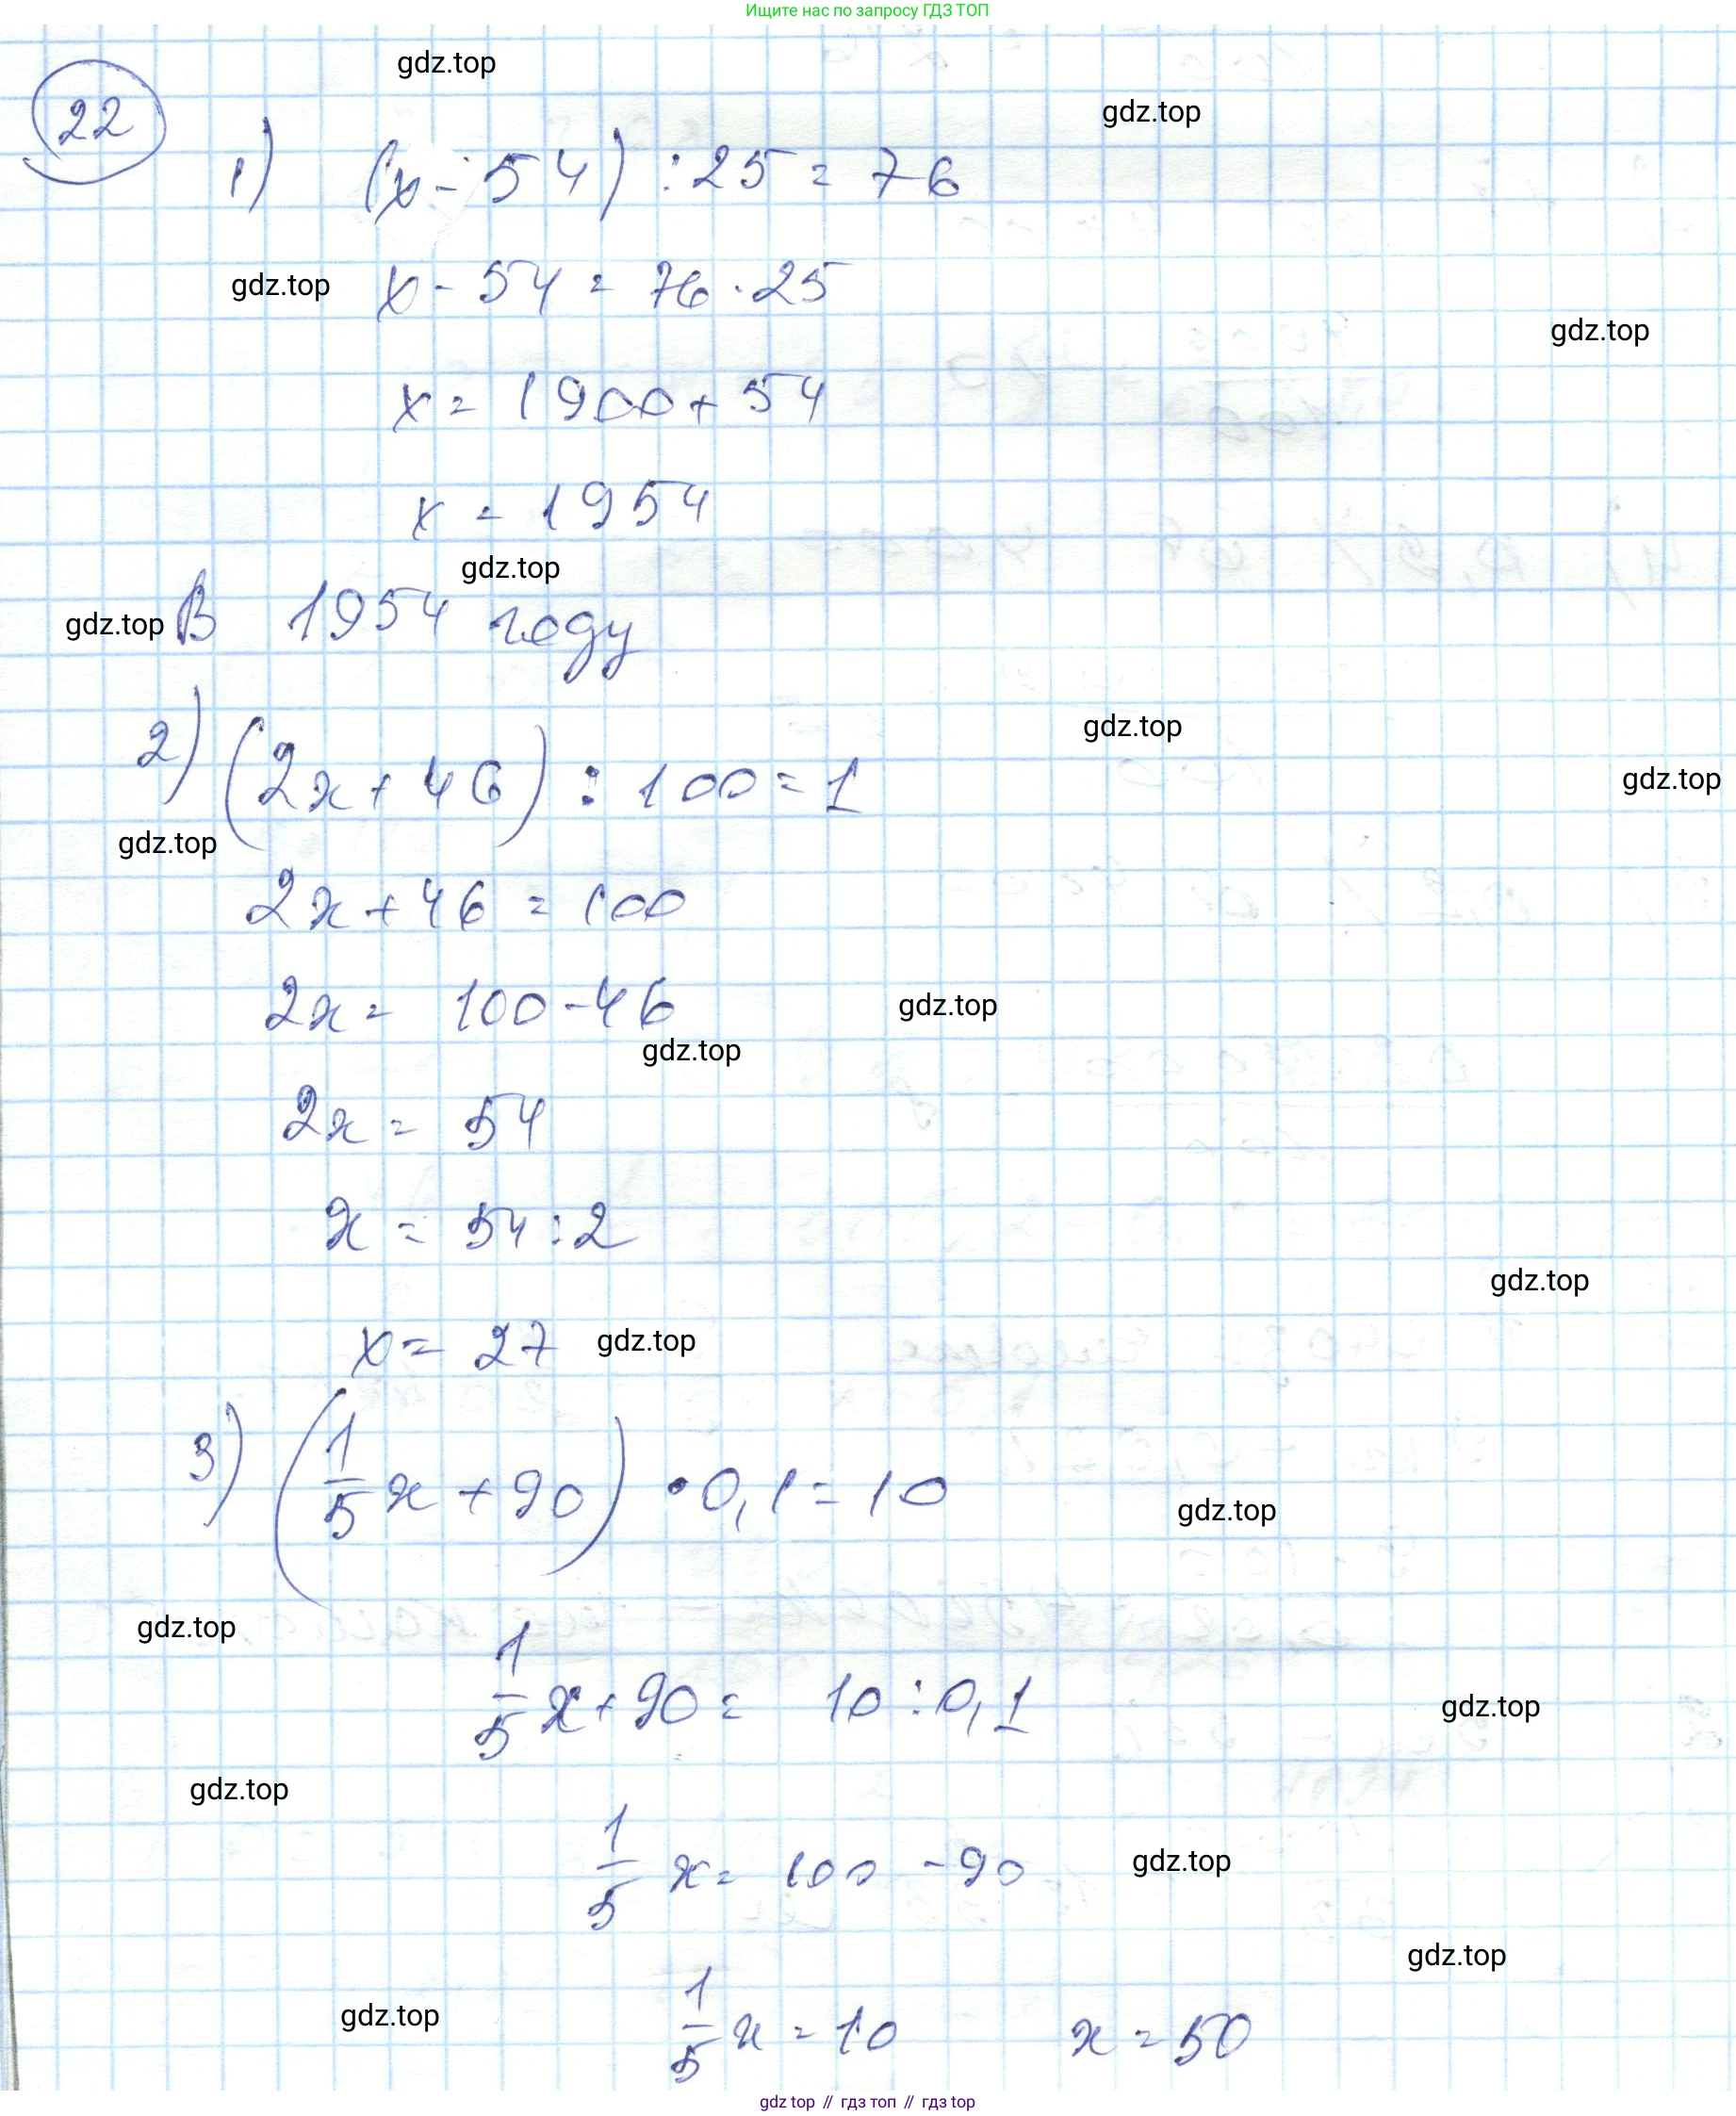 Ищите нас по запросу ГДЗ ТОП
gdz.top
22
gdz.top
1) (x - 54) : 25 = 76
gdz.top
x - 54 = 76 · 25
gdz.top
x = 1900 + 54
x = 1954
gdz.top
gdz.top
В 1954 году
gdz.top
2) (2x + 46) : 100 = 1
gdz.top
gdz.top
2x + 46 = 100
2x = 100 - 46
gdz.top
gdz.top
2x = 54
x = 54 : 2
gdz.top
x = 27
gdz.top
3) (1/5 x + 90) · 0,1 = 10
gdz.top
gdz.top
1/5 x + 90 = 10 : 0,1
gdz.top
gdz.top
1/5 x = 100 - 90
gdz.top
gdz.top
gdz.top
1/5 x = 10 x = 50
gdz top // гдз топ // гдз top